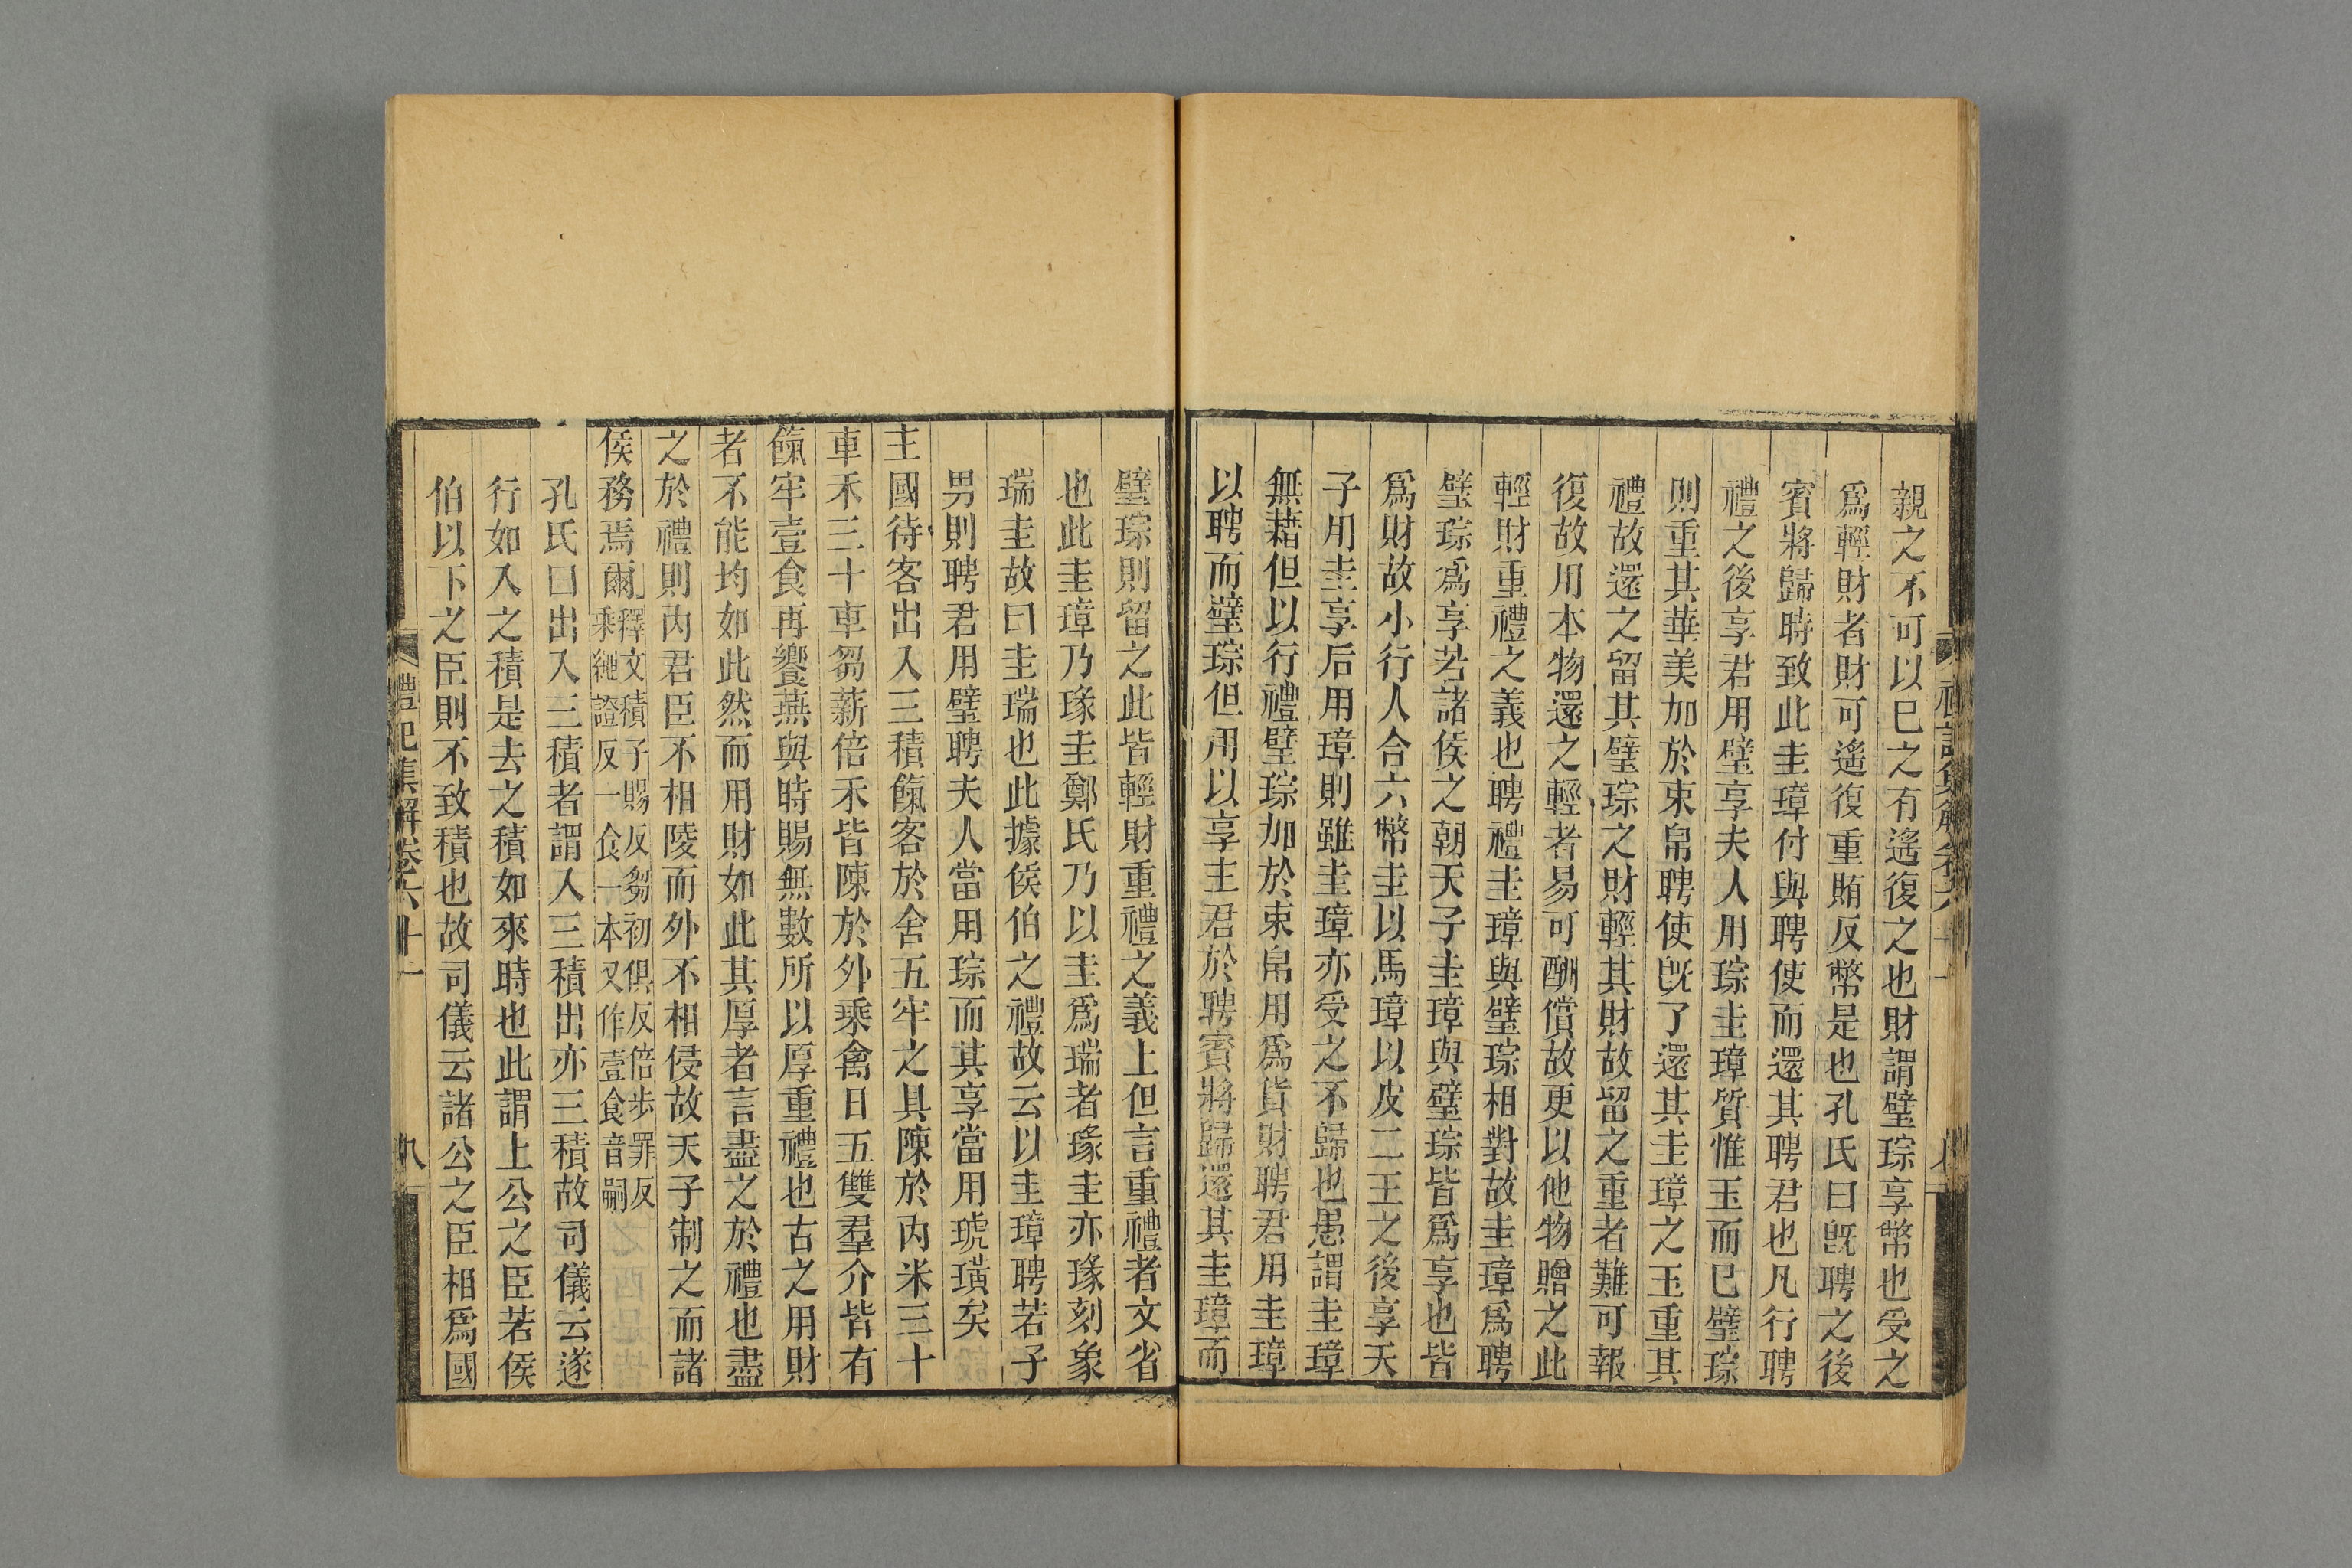 親之不可以已之有遙復之也財謂璧琮享幣也受之
爲輕財者財可遙復重賄反幣是也孔氏曰旣聘之後
賓將歸時致此圭璋付與聘使而還其聘君也凡行聘
禮之後享君用璧享夫人用琮圭璋質惟玉而已璧琮
則重其華美加於束帛聘使旣了還其圭璋之玉重其
禮故還之留其璧琮之財輕其財故留之重者難可報
復故用本物還之輕者易可酬償故更以他物贈之此
輕財重禮之義也聘禮圭璋與璧琮相對故圭璋爲聘
璧琮爲享若諸侯之朝天子圭璋與璧琮皆爲享也皆
爲財故小行人合六幣圭以馬璋以皮二王之後享天
子用圭享后用璋則雖圭璋亦受之不歸也愚謂圭璋
無藉但以行禮璧琮加於束帛用爲貨財聘君用圭璋
以聘而璧琮但用以享主君於聘賓將歸還其圭璋而
璧琮則留之此皆輕財重禮之義上但言重禮者文省
也此圭璋乃瑑圭鄭氏乃以圭爲瑞者瑑圭亦瑑刻象
瑞圭故曰圭瑞也此據侯伯之禮故云以圭璋聘若子
男則聘君用璧聘夫人當用琮而其享當用琥璜矣
主國待客出入三積餼客於舍五牢之具陳於內米三十
車禾三十車芻薪倍禾皆陳於外乘禽日五雙羣介皆有
餼牢壹食再饗燕與時賜無數所以厚重禮也古之用財
者不能均如此然而用財如此其厚者言盡之於禮也盡
之於禮則內君臣不相陵而外不相侵故天子制之而諸
侯務焉爾
釋文積子賜反芻初俱反倍步罪反
乘繩證反一食一本又作壹食音嗣
孔氏曰出入三積者謂入三積出亦三積故司儀云遂
行如入之積是去之積如來時也此謂上公之臣若侯
伯以下之臣則不致積也故司儀云諸公之臣相爲國
禮記集解卷六十一
九